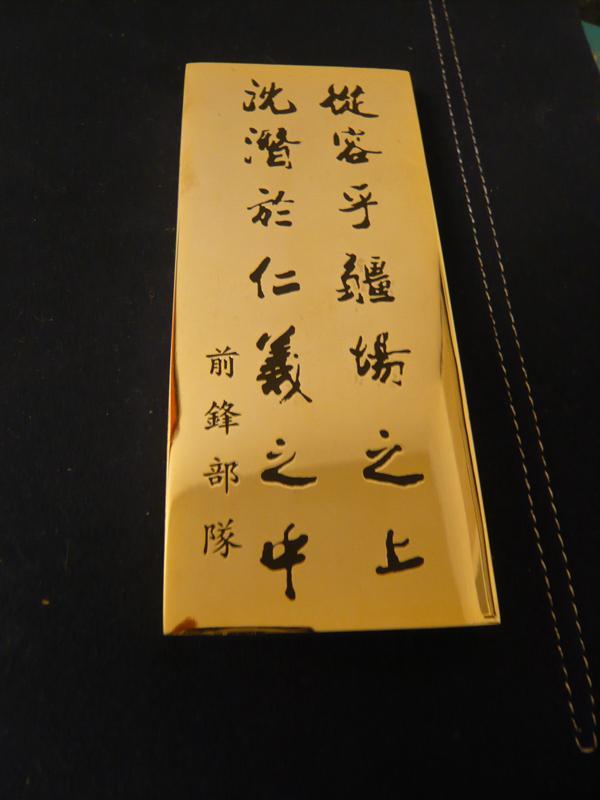 從容乎疆場之上
沈潛於仁義之中
前鋒部隊